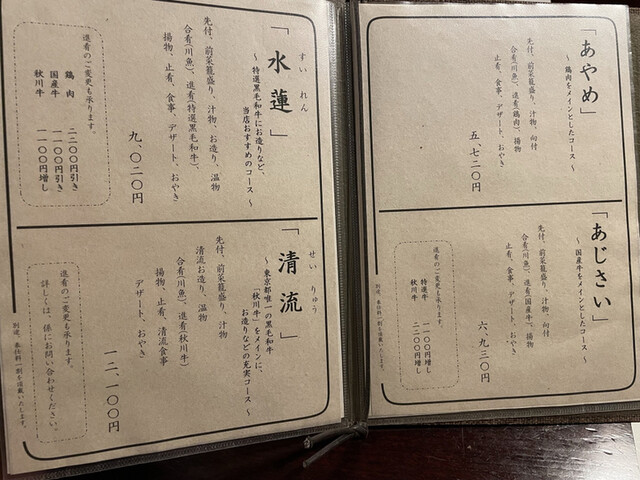 「あやめ」
～ 鶏肉をメインとしたコース ～
先付、前菜籠盛り、汁物、向付
合肴(川魚)、進肴(鶏肉)、揚物
止肴、食事、デザート、おやき
五、七二〇円
「あじさい」
～ 国産牛をメインとしたコース ～
先付、前菜籠盛り、汁物、向付
合肴(川魚)、進肴(国産牛)、揚物
止肴、食事、デザート、おやき
六、九三〇円
進肴のご変更も承ります。
特選牛 一一〇〇円増し
秋川牛 二二〇〇円増し
別途、奉仕料一割を頂戴いたします。
すい れん
「水蓮」
～ 特選黒毛和牛にお造りなど、
当店おすすめのコース ～
先付、前菜籠盛り、汁物、お造り、温物
合肴(川魚)、進肴(特選黒毛和牛)、
揚物、止肴、食事、デザート、おやき
九、〇二〇円
進肴のご変更も承ります。
鶏肉 二二〇〇円引き
国産牛 一一〇〇円引き
秋川牛 一一〇〇円増し
せい りゅう
「清流」
～ 東京都唯一の黒毛和牛
「秋川牛」をメインに、
お造りなどの充実コース ～
先付、前菜籠盛り、汁物
清流お造り、温物
合肴(川魚)、進肴(秋川牛)
揚物、止肴、清流食事
デザート、おやき
一二、一〇〇円
進肴のご変更も承ります。
詳しくは、係にお問い合わせください。
別途、奉仕料一割を頂戴いたします。